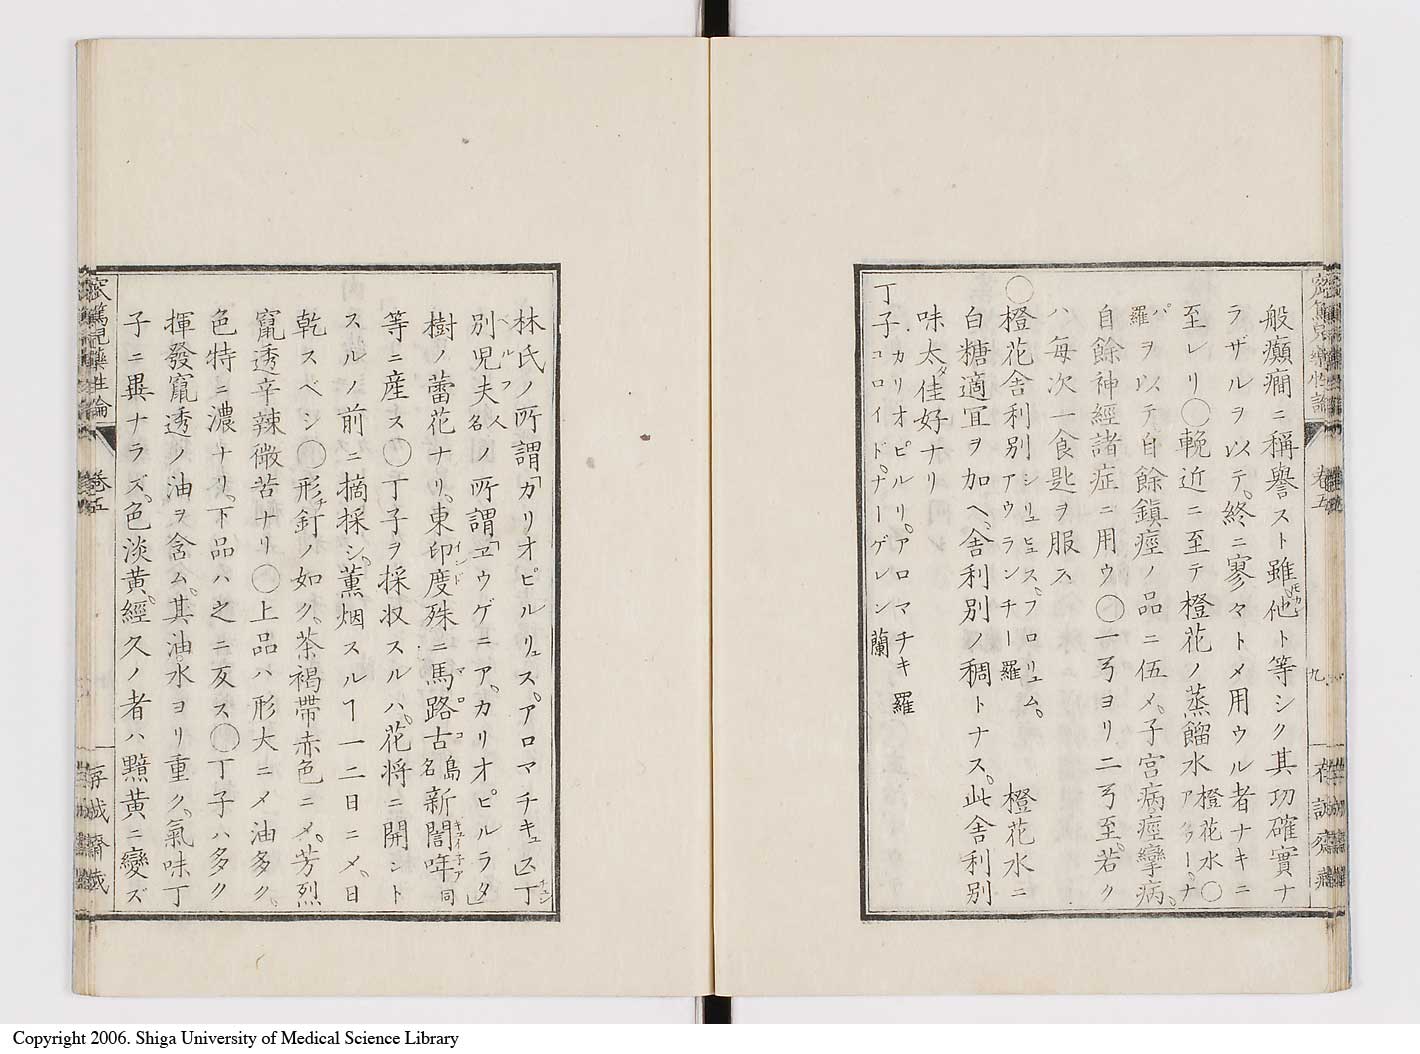 般癲癇ニ稱譽スト雖他ト等シク其功確實ナ
ラザルヲ以テ終ニ寥々トメ用ウル者ナキニ
至レリ〇輓近ニ至テ橙花ノ蒸餾水橙花水〇アクアナー
羅ヲ以テ自餘鎭痙ノ品ニ伍メ子宮病痙攣病
自餘神經諸症ニ用ウ〇一弓ヨリ二弓至若ク
ハ每次一食匙ヲ服ス
〇橙花舎利別シリュヒュス。フロリュム。アウランチー羅 橙花水ニ
白糖適宜ヲ加ヘ舎利別ノ稠トナス此舎利別
味太佳好ナリ
丁子カリオピルリ。アロマチキ 羅
コロイド。ナーゲレン 蘭
林氏ノ所謂「カリオピルリュス。アロマチキュス」丁
別児夫人名ノ所謂「ヱウゲニア。カリオピルラタ」
樹ノ蕾花ナリ東印度殊ニ馬路古島名新閣年同
等ニ産ス〇丁子ヲ採収スルハ花将ニ開ント
スルノ前ニ摘採シ薫烟スルヿ一二日ニメ日
乾スベシ〇形釘ノ如ク茶褐帶赤色ニメ芳烈
竄透辛辣微苦ナリ〇上品ハ形大ニメ油多ク
色特ニ濃ナリ下品ハ之ニ反ス〇丁子ハ多ク
揮發竄透ノ油ヲ含ム其油水ヨリ重ク氣味丁
子ニ異ナラズ色淡黄經久ノ者ハ黯黄ニ變ズ
窊篤児藥性論
卷五
九
存誠齋蔵
Copyright 2006. Shiga University of Medical Science Library